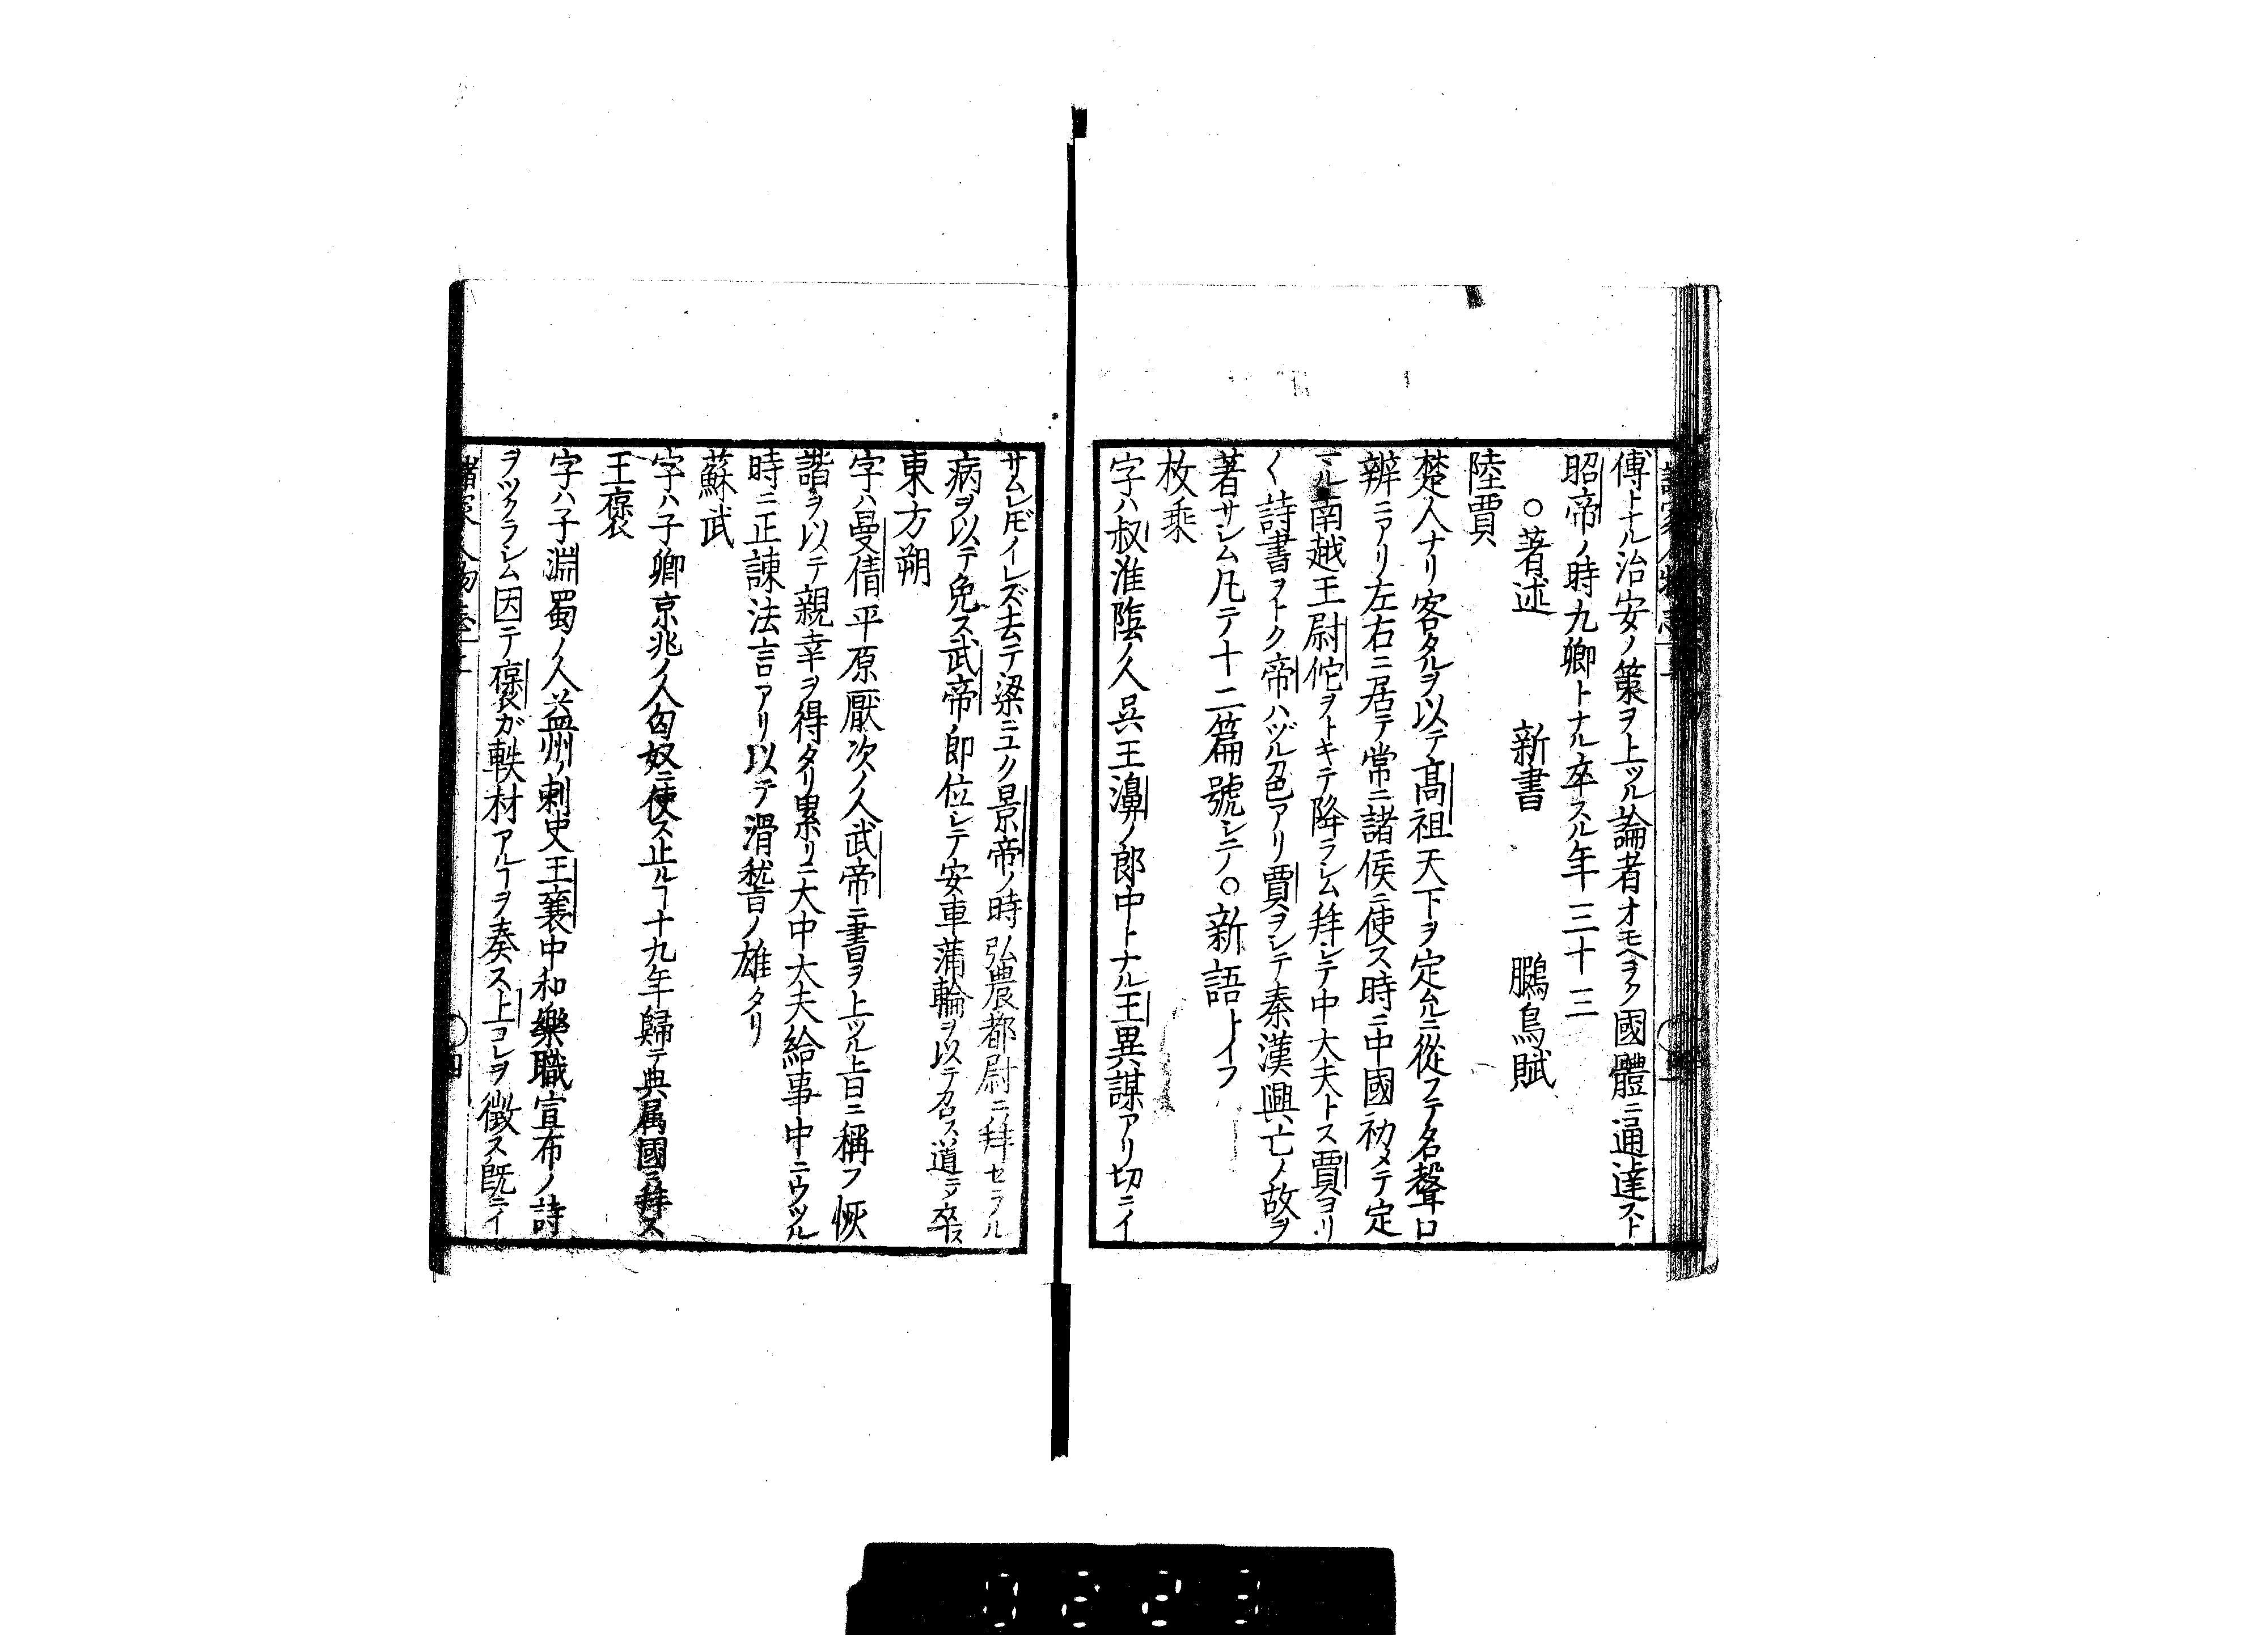 傅トナル治安ノ策ヲ上ツル論者オモヘラク國體ニ通達スト
昭帝ノ時九卿トナル卒スル年三十三
○著述　新書　鵩鳥賦
陸賈
楚人ナリ客タルヲ以テ高祖天下ヲ定ムルニ從フテ名聲口
辨ニアリ左右ニ居テ常ニ諸侯ニ使ス時ニ中國初メテ定
マル南越王尉佗ヲトキテ降ラシム拜シテ中大夫トス賈ヨリ
〱詩書ヲトク帝ハヅル色アリ賈ヲシテ秦漢興亡ノ故ヲ
著サシム凡テ十二篇號シテ○新語トイフ
枚乘
字ハ叔淮陰ノ人呉王濞ノ郎中トナル王異謀アリ切ニイ
サムレ𪜈イレズ去テ梁ニユク景帝ノ時弘農都尉ニ拜セラル
病ヲ以テ免ス武帝即位シテ安車蒲輪ヲ以テ召ス道ニテ卒ス
東方朔
字ハ曼倩平原厭次ノ人武帝ニ書ヲ上ツル上旨ニ稱フ恢
諧ヲ以テ親幸ヲ得タリ累リニ大中大夫給事中ニウツル
時ニ正諫法言アリ以テ滑稽ノ雄タリ
蘇武
字ハ子卿京兆ノ人匈奴ニ使ス止ルヿ十九年歸テ典属國ニ拜ス
王褒
字ハ子淵蜀ノ人益州ノ刺史王襄中和樂職宣布ノ詩
ヲツクラシム因テ褒ガ軼材アルヿヲ奏ス上コレヲ徴ス既ニイ